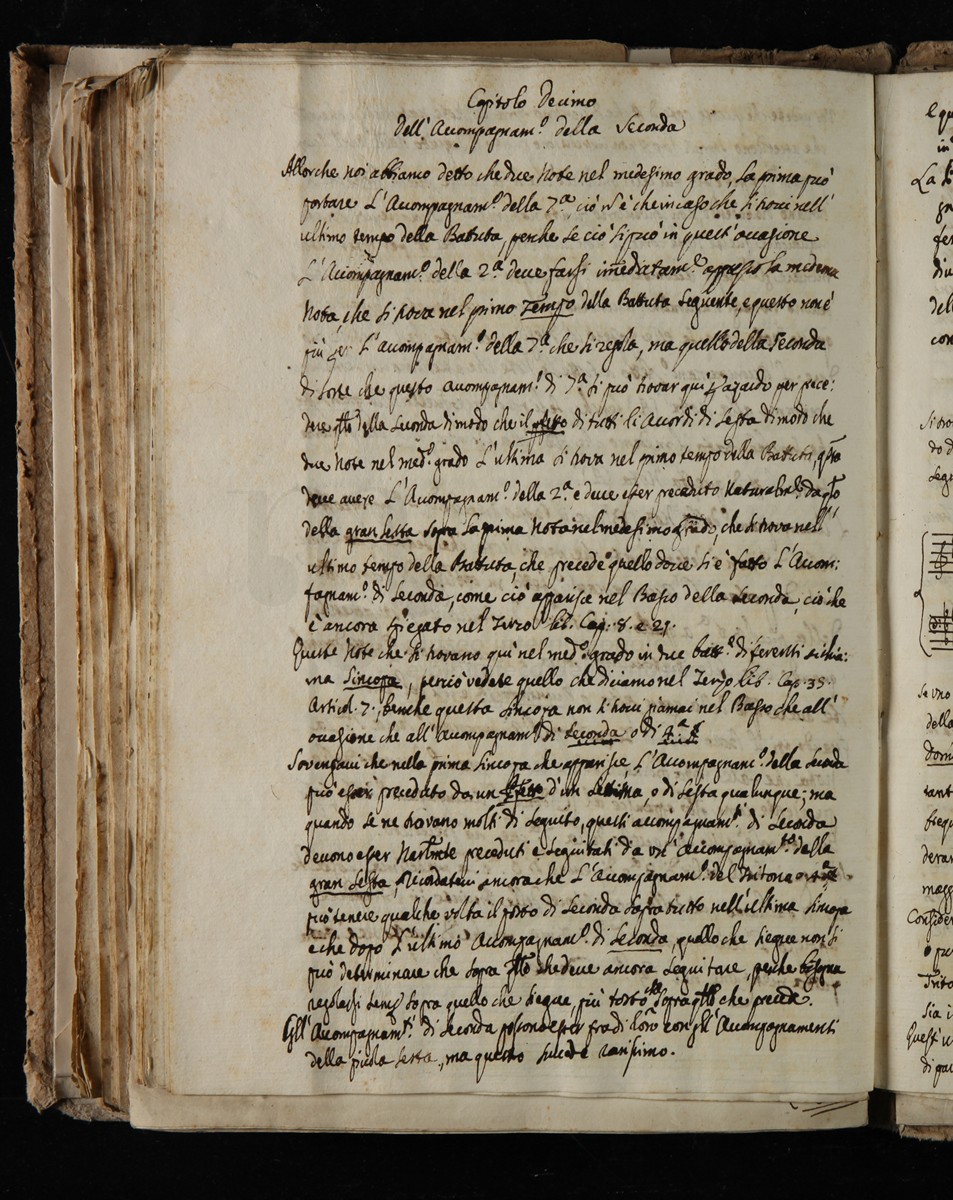 Capitolo Decimo
Dell' Accompagnam.º della Seconda
Allorche noi abbiamo detto che due Note nel medesimo grado, la prima può
portare L'Accompagnam.º della 7.ª ciò è che in caso che si trovi nell'
ultimo tempo della Battuta, perche se ciò si può in quest'ocasione
L'Accompagnam.º della 2.ª deve farsi imediatam.e appresso la medema
Nota, che si trova nel primo Tempo della Battuta seguente, e questo non è
più per L'accompagnam.º della 7.ª che si regola, ma quello della Seconda
di sorte che questo acompagnam.º di 7.ª si può trovar qui per prece:
dere qllo della Seconda di modo che il di tutti li Acordi di Sesta di modo che
due Note nel med.º grado L'ultima si trova nel primo tempo della Battuta, qsta
deve avere L'Accompagnam.º della 2.ª e deve esser preceduto Natural.e da qllo
della gran Sesta sopra la prima Nota nel medesimo grado, che si trova nell'
ultimo tempo della Battuta, che precede quello dove si è fatto L'Acom:
pagnam.º di Seconda, come ciò apparisce nel Basso della Seconda, ciò che
è ancora spiegato nel Terzo lib. Cap. 8. e 21.
Queste Note che si trovano qui nel med.º grado in due batt.e diferenti si chia:
ma Sincopa, perciò vedete quello che diciamo nel Terzo lib. Cap. 35.
Articol. 7., benche questa sincopa non si trovi giamai nel Basso che all'
ocasione che all'acompagnam.º di Seconda o di 4.ª
Sovengavi che nella prima sincopa che apparisce L'Accompagnam.º della Seconda
può esser preceduto da un d'un Settima, o di Sesta qualunque; ma
quando se ne trovano molti di seguito, questi accompagnam.ti di Seconda
devono esser preceduti e seguitati da un' Accompagnam.to della
gran Sesta, Ricordatevi ancora che L'Acompagnam.º del Tritono
può tenere qualche volta il posto di Seconda sopra tutto nell'ultima sincopa
e che dopo L'ultimo Accompagnam.º di Seconda, quello che siegue non si
può determinare che sopra qllo che deve ancora seguitare, perche bisogna
regolarsi sempre sopra quello che siegue più tosto che sopra qllo che precede.
Gll' Acompagnam.ti di Seconda possono esser fra di loro con gl' Accompagnamenti
della picola sesta, ma questo succede rarissimo.